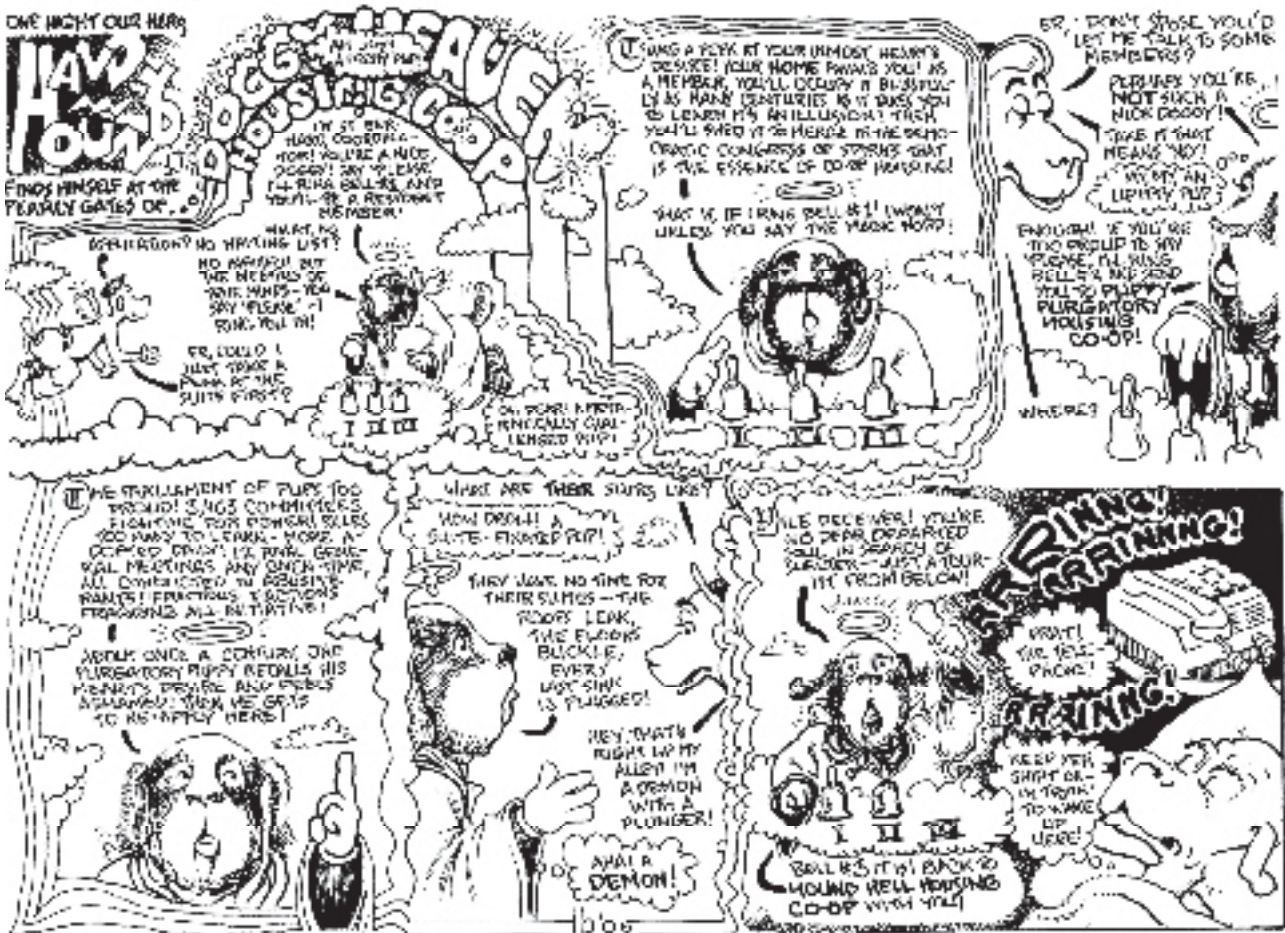 ONE NIGHT OUR HERO
HOUND
FINDS HIMSELF AT THE
PEARLY GATES OF...
HOUSING CO-OP!
DOGGY! SAY 'PLEASE'
I'LL RING BELL #1, AND
YOU'LL BE A RESIDENT
MEMBER!
WHAT, NO
APPLICATION? NO WAITING LIST?
SAY 'PLEASE'
RING YOU IN!
ER, COULD I
JUST TAKE A
PEEK AT THE
SUITE FIRST?
I II III
OH, DEAR!
LENGED PUP!
TAKE A PEEK AT YOUR INMOST HEART'S
DESIRE! YOUR HOME AWAITS YOU! AS
A MEMBER, YOU'LL OCCUPY IT BLISSFUL-
LY AS MANY CENTURIES AS IT TAKES YOU
TO LEARN IT'S AN ILLUSION! THEN
YOU'LL SHED IT TO MERGE IN THE DEMO-
CRATIC CONGRESS OF SPIRITS THAT
IS THE ESSENCE OF CO-OP HOUSING!
THAT IS, IF I RING BELL #1! I WON'T
UNLESS YOU SAY THE MAGIC WORD!
I II III
ER, I DON'T S'POSE YOU'D
LET ME TALK TO SOME
MEMBERS?
PERHAPS YOU'RE
NOT SUCH A
NICE DOGGY!
TAKE IT THAT
MEANS NO!
MY MY AN
UPPITY PUP
ENOUGH! IF YOU'RE
TOO PROUD TO SAY
'PLEASE', I'LL RING
BELL #2 AND SEND
YOU TO PUPPY
PURGATORY
HOUSING
CO-OP!
WHERE?
THE PARLIAMENT OF PUPS TOO
PROUD! 3,463 COMMITTEES
FIGHTING FOR POWER! RULES
TOO MANY TO LEARN - MORE A-
DOPTED DAILY! RIVAL GENE-
RAL MEETINGS ANY GIVEN TIME,
ALL CONDUCTED IN ABUSIVE
RANTS! FRACTIOUS FACTIONS
FRAGGING ALL INITIATIVE!
ABOUT ONCE A CENTURY, ONE
PURGATORY PUPPY RECALLS HIS
HEART'S DESIRE AND FEELS
ASHAMED! THEN HE GETS
TO RE-APPLY HERE!
WHAT ARE THEIR SUITES LIKE?
HOW DROLL! A
SUITE-FIXATED PUP!
THEY HAVE NO TIME FOR
THEIR SUITES -- THE
ROOFS LEAK,
THE FLOORS
BUCKLE,
EVERY
LAST SINK
IS PLUGGED!
HEY, THAT'S
RIGHT UP MY
ALLEY! I'M
A DEMON
WITH A
PLUNGER!
AHA! A
DEMON!
VILE DECEIVER! YOU'RE
NO DEAR DEPARTED
SOUL IN SEARCH OF
SHELTER -- JUST A TOUR-
IST FROM BELOW!
I II III
BELL #3 IT IS! BACK TO
HOUND HELL HOUSING
CO-OP WITH YOU!
RRRINNG!
RRRINNNG!
DRAT!
THE TELE-
PHONE!
RRRINNG!
KEEP YER
SHIRT ON -
I'M TRYIN'
TO WAKE
UP
HERE!